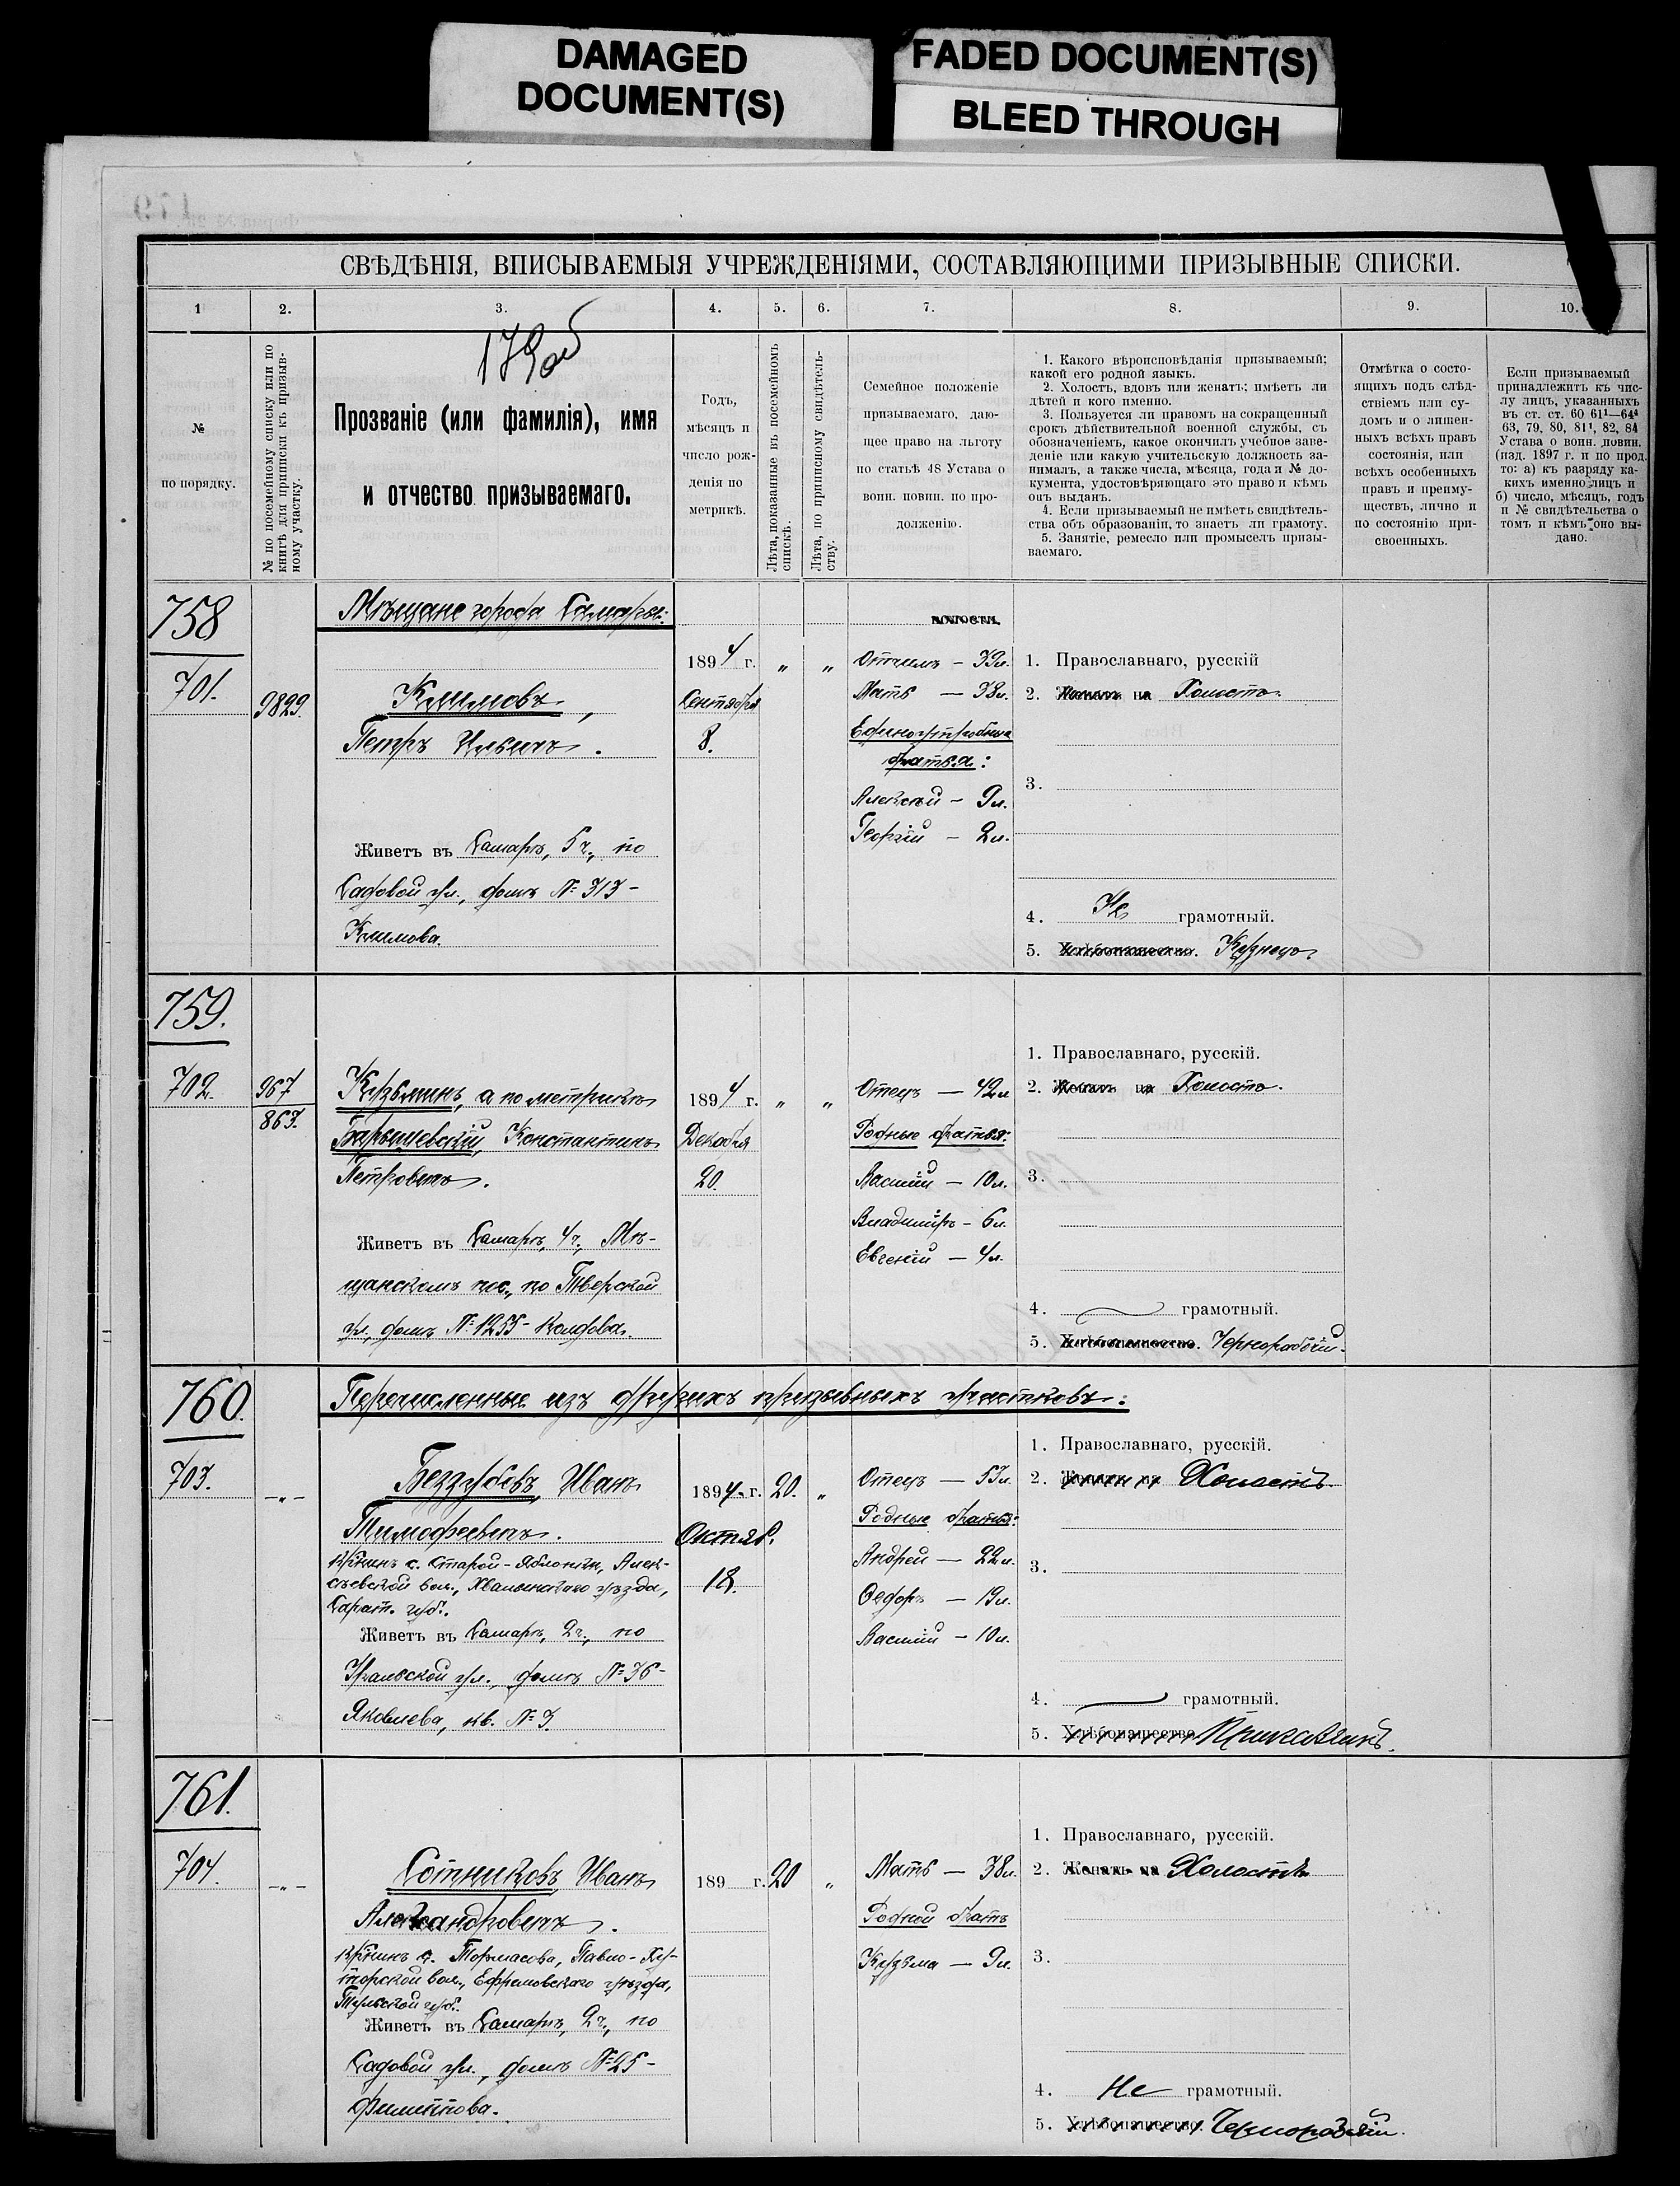 DAMAGED
DOCUMENT(S)
FADED DOCUMENT(S)
BLEED THROUGH
СВѢДѢНІЯ, ВПИСЫВАЕМЫЯ УЧРЕЖДЕНІЯМИ, СОСТАВЛЯЮЩИМИ ПРИЗЫВНЫЕ СПИСКИ.
1 2. 3. 4. 5. 6. 7. 8. 9. 10.
179 об
№
по порядку.
№ по посемейному списку или по
книгѣ для приписки къ призыв-
ному участку.
Прозваніе (или фамилія), имя
и отчество призываемаго.
Годъ,
мѣсяцъ и
число рож-
денія по
метрикѣ.
Лѣта, показанные въ посемейномъ
спискѣ.
Лѣта, по приписному свидѣтель-
ству.
Семейное положеніе
призываемаго, даю-
щее право на льготу
по статьѣ 48 Устава о
воин. повин. по про-
долженію.
1. Какого вѣроисповѣданія призываемый;
какой его родной языкъ.
2. Холостъ, вдовъ или женатъ; имѣетъ ли
дѣтей и кого именно.
3. Пользуется ли правомъ на сокращенный
срокъ дѣйствительной военной службы, съ
обозначеніемъ, какое окончилъ учебное заве-
деніе или какую учительскую должность за-
нималъ, а также числа, мѣсяца, года и № до-
кумента, удостовѣряющаго это право и кѣмъ
онъ выданъ.
4. Если призываемый не имѣетъ свидѣтель-
ства объ образованіи, то знаетъ ли грамоту.
5. Занятіе, ремесло или промыселъ призы-
ваемаго.
Отмѣтка о состо-
ящихъ подъ слѣд-
ствіемъ или су-
домъ и о лишен-
ныхъ всѣхъ правъ
состоянія, или
всѣхъ особенныхъ
правъ и преиму-
ществъ, лично и
по состоянію при-
своенныхъ.
Если призываемый
принадлежитъ къ чис-
лу лицъ, указанныхъ
въ ст. ст. 60 61¹—64⁴
63, 79, 80, 81¹, 82, 84
Устава о воин. повин.
(изд. 1897 г. и по прод.
то: а) къ разряду ка-
кихъ именно лицъ и
б) число, мѣсяцъ, годъ
и № свидѣтельства о
томъ и кѣмъ оно вы-
дано.
758
701.
9829.
Мѣщане города Самары:
Климовъ,
Петръ Ильичъ.
Живетъ въ Самарѣ, 5 ч., по
Садовой ул., домъ № 313-
Климова.
1894 г.
Сентября
8.
" "
волости.
Отчимъ - 39л.
Мать - 38л.
Единоутробные
братья:
Алексѣй - 9л.
Георгій - 2л.
1. Православнаго, русскій
2. Женатъ на Холостъ.
3.
4. Не грамотный.
5. Хлѣбопашество. Кузнецъ.
759.
702.
967
863.
Кузьминъ, а по метрикѣ
Барышевскій, Константинъ
Петровичъ.
Живетъ въ Самарѣ, 4 ч., Мѣ-
щанскомъ пос., по Тверской
ул., домъ № 1255-
1894 г.
Декабря
20.
" "
Отецъ - 42л
Родные братья:
Василій - 10л.
Владиміръ - 6л.
Евгеній - 4л.
1. Православнаго, русскій.
2. Женатъ на Холостъ.
3.
4. грамотный.
5. Хлѣбопашество. Чернорабочій.
760.
703.
-"-
Перечисленные изъ другихъ призывныхъ участковъ:
Беззубовъ, Иванъ
Тимофеевичъ.
кр-нинъ с. Старой-Яблонки, Алек-
сѣевской вол., Хвалынскаго уѣзда,
Сарат. губ.
Живетъ въ Самарѣ, 2 ч., по
Уральской ул., домъ № 36-
Яковлева, кв. № 3.
1894. г.
Октяб.
18.
20. "
Отецъ - 53л.
Родные братья:
Андрей - 22л.
Ѳедоръ - 19л.
Василій - 10л.
1. Православнаго, русскій.
2. Женатъ на Холостъ.
3.
4. грамотный.
5. Хлѣбопашество. Приказчикъ.
761.
704.
-"-
Сотниковъ, Иванъ
Александровичъ.
кр-нинъ с. Тормасова, Павло-Ху-
торской вол., Ефремовскаго уѣзда,
Тульской губ.
Живетъ въ Самарѣ, 2 ч., по
Садовой ул., домъ № 25-
Филиппова.
189 г.
20 "
Мать - 38л.
Родной братъ
Кузьма - 9л.
1. Православнаго, русскій.
2. Женатъ на Холостъ
3.
4. Не грамотный.
5. Хлѣбопашество. Чернорабочій.